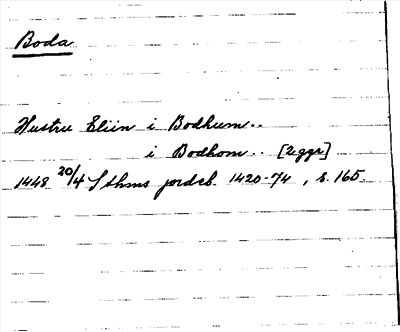 Boda
Hustru Eliin i Bodhum..
i Bodhom.. [2 ggr]
1448 20/4 Sthms jordeb. 1420-74, s. 165.